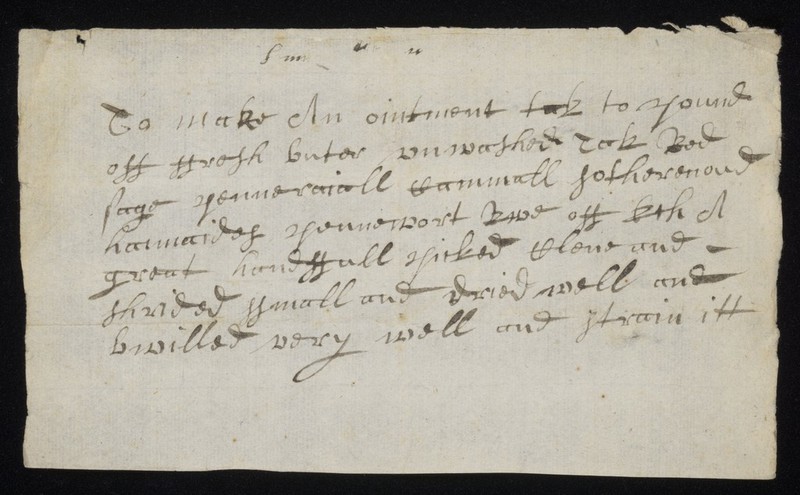 To make An ointment tak to pound
off ffresh buter unwashed Tak Red
sage penneraiall Cammall sotherenoud
pennewort Rwe off Eth A
great handffull picked Clene and
shrided small and dried well and
bwilled very well and strain itt